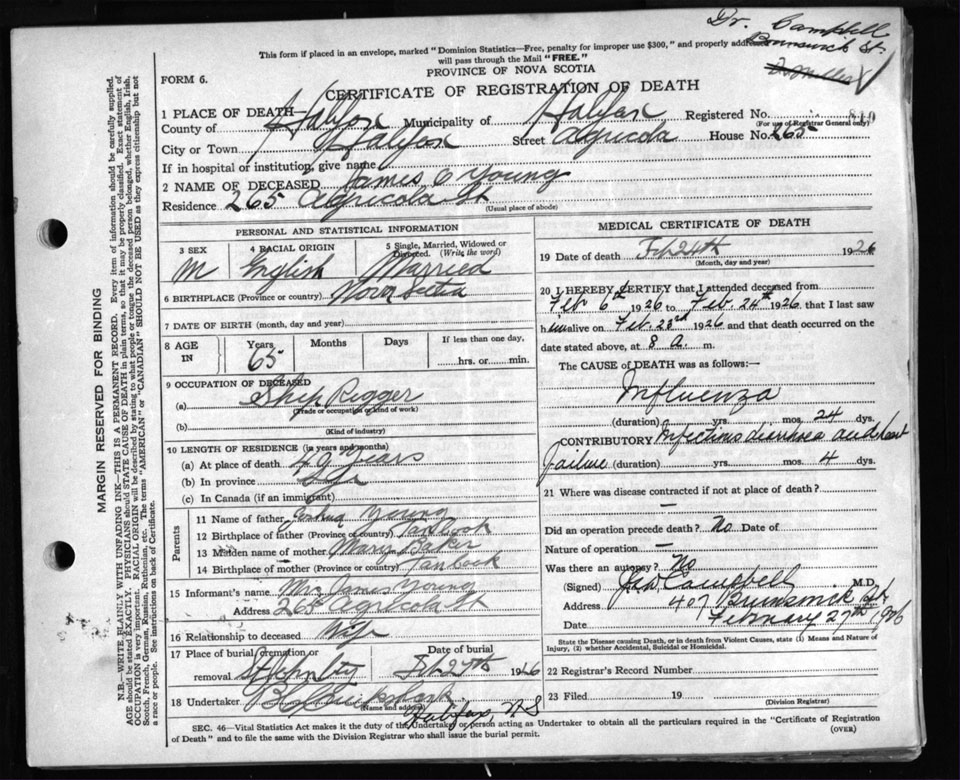 Dr. Campbell
Brunswick St.
This form if placed in an envelope, marked "Dominion Statistics—Free, penalty for improper use $300," and properly addressed
will pass through the Mail "FREE."
PROVINCE OF NOVA SCOTIA
FORM 6.
CERTIFICATE OF REGISTRATION OF DEATH
1 PLACE OF DEATH
County of Halifax Municipality of Halifax Registered No.
(For use of Registrar General only)
City or Town Halifax Street Agricola House No. 265
If in hospital or institution, give name
2 NAME OF DECEASED James C Young
Residence 265 Agricola St
(Usual place of abode)
PERSONAL AND STATISTICAL INFORMATION
3 SEX M
4 RACIAL ORIGIN English
5 Single, Married, Widowed or Divorced. (Write the word) Married
6 BIRTHPLACE (Province or country) Nova Scotia
7 DATE OF BIRTH (month, day and year)
8 AGE IN Years 65 Months Days If less than one day, hrs. or min.
9 OCCUPATION OF DECEASED
(a) Ship Rigger
(Trade or occupation or kind of work)
(b)
(Kind of industry)
10 LENGTH OF RESIDENCE (in years and months)
(a) At place of death Years
(b) In province
(c) In Canada (if an immigrant)
Parents
11 Name of father Joshua Young
12 Birthplace of father (Province or country) Tancook
13 Maiden name of mother Mary Baker
14 Birthplace of mother (Province or country) Tancook
15 Informant's name Mrs James Young
Address 265 Agricola St
16 Relationship to deceased Wife
17 Place of burial, cremation or removal
Date of burial 1926
18 Undertaker
(Name and address)
Halifax, N.S
MEDICAL CERTIFICATE OF DEATH
19 Date of death Feb 24th 1926
(Month, day and year)
20 I HEREBY CERTIFY that I attended deceased from
Feb 6th 1926 to Feb. 24th 1926, that I last saw
him alive on Feb. 23rd 1926 and that death occurred on the
date stated above, at 8 a. m.
The CAUSE OF DEATH was as follows:—
Influenza
(duration) yrs. mos. 24 dys.
CONTRIBUTORY Infectious diarrhoea and heart
failure (duration) yrs. mos. 4 dys.
21 Where was disease contracted if not at place of death?
—
Did an operation precede death? No Date of
Nature of operation —
Was there an autopsy? No
(Signed) Campbell M.D.
Address 407 Brunswick St
Date February 27th 1926
State the Disease causing Death, or in death from Violent Causes, state (1) Means and Nature of
Injury, (2) whether Accidental, Suicidal or Homicidal.
22 Registrar's Record Number
23 Filed 19
(Division Registrar)
SEC. 46—Vital Statistics Act makes it the duty of the Undertaker or person acting as Undertaker to obtain all the particulars required in the "Certificate of Registration
of Death" and to file the same with the Division Registrar who shall issue the burial permit.
(OVER)
MARGIN RESERVED FOR BINDING
N.B.—WRITE PLAINLY WITH UNFADING INK—THIS IS A PERMANENT RECORD. Every item of information should be carefully supplied.
AGE should be stated EXACTLY. PHYSICIANS should STATE CAUSE OF DEATH in plain terms, so that it may be properly classified. Exact statement of
OCCUPATION is very important. RACIAL ORIGIN will be described by stating to what people or tongue the deceased person belonged, whether English, Irish,
Scotch, French, German, Russian, Ruthenian, etc. The terms "AMERICAN" or "CANADIAN" SHOULD NOT BE USED as they express citizenship but not
a race or people. See instructions on back of Certificate.